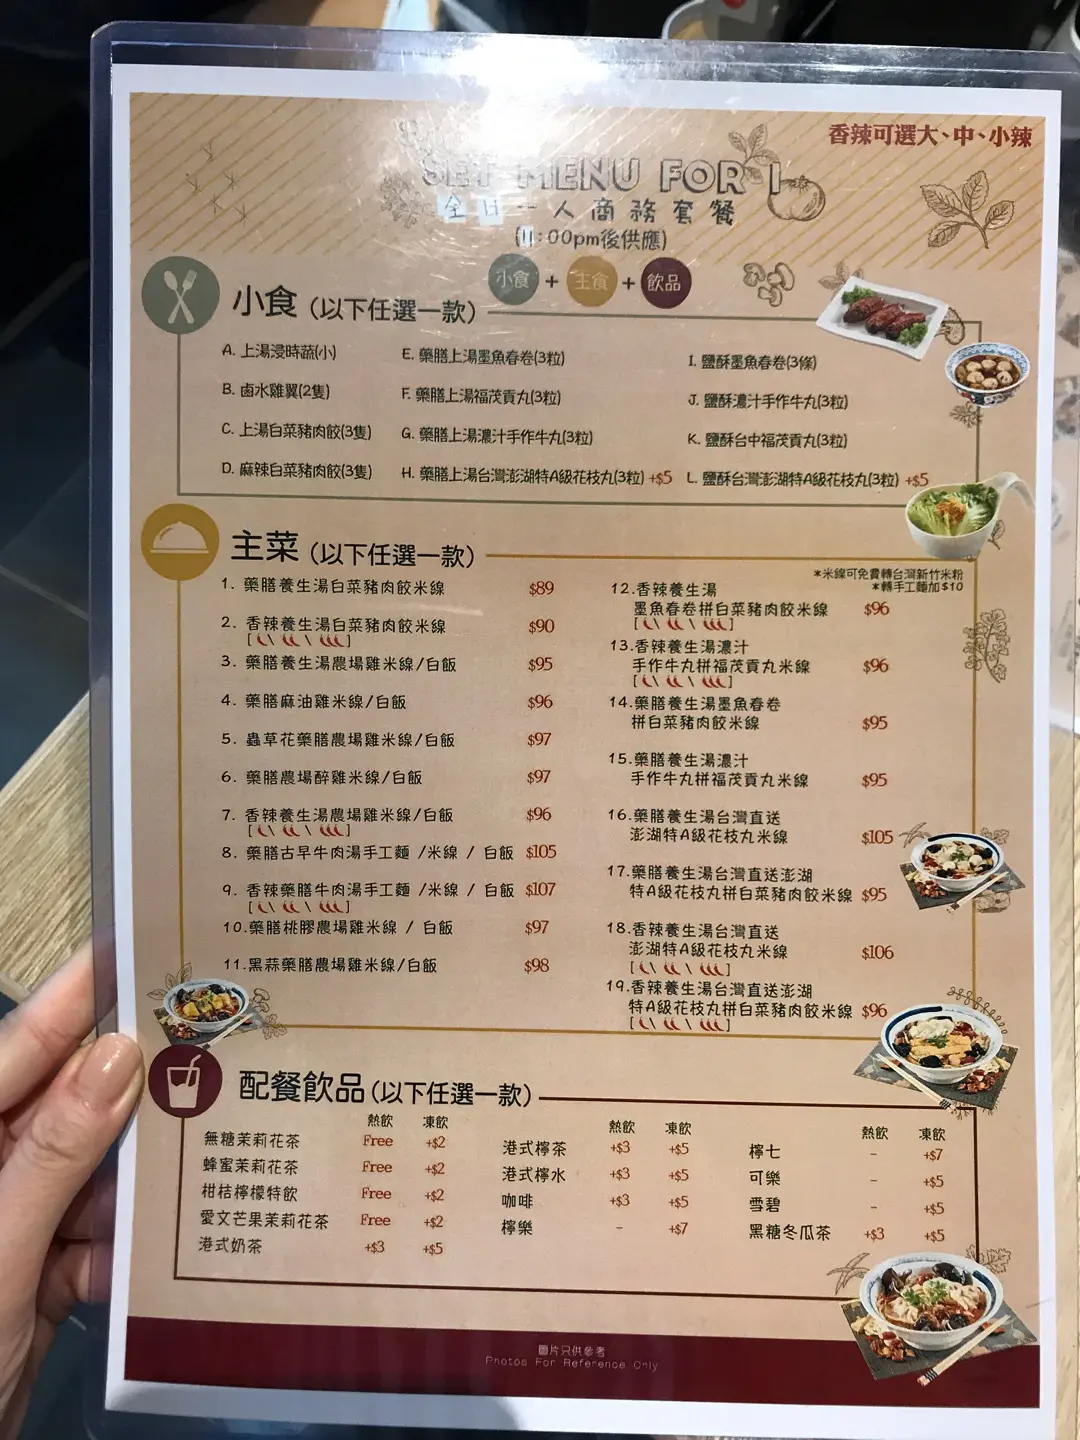 香辣可選大、中、小辣
SET MENU FOR 1
全日一人商務套餐
(11:00pm後供應)
小食 + 主食 + 飲品
小食 (以下任選一款)
A. 上湯浸時蔬(小)
B. 鹵水雞翼(2隻)
C. 上湯白菜豬肉餃(3隻)
D. 麻辣白菜豬肉餃(3隻)
E. 藥膳上湯墨魚春卷(3粒)
F. 藥膳上湯福茂貢丸(3粒)
G. 藥膳上湯濃汁手作牛丸(3粒)
H. 藥膳上湯台灣澎湖特A級花枝丸(3粒) +$5
I. 鹽酥墨魚春卷(3條)
J. 鹽酥濃汁手作牛丸(3粒)
K. 鹽酥台中福茂貢丸(3粒)
L. 鹽酥台灣澎湖特A級花枝丸(3粒) +$5
主菜 (以下任選一款)
*米線可免費轉台灣新竹米粉
*轉手工麵加$10
1. 藥膳養生湯白菜豬肉餃米線 $89
2. 香辣養生湯白菜豬肉餃米線 $90
3. 藥膳養生湯農場雞米線/白飯 $95
4. 藥膳麻油雞米線/白飯 $96
5. 蟲草花藥膳農場雞米線/白飯 $97
6. 藥膳農場醉雞米線/白飯 $97
7. 香辣養生湯農場雞米線/白飯 $96
8. 藥膳古早牛肉湯手工麵 /米線 / 白飯 $105
9. 香辣藥膳牛肉湯手工麵 /米線 / 白飯 $107
10.藥膳桃膠農場雞米線 / 白飯 $97
11.黑蒜藥膳農場雞米線/白飯 $98
12.香辣養生湯
墨魚春卷拼白菜豬肉餃米線 $96
13.香辣養生湯濃汁
手作牛丸拼福茂貢丸米線 $96
14.藥膳養生湯墨魚春卷
拼白菜豬肉餃米線 $95
15.藥膳養生湯濃汁
手作牛丸拼福茂貢丸米線 $95
16.藥膳養生湯台灣直送
澎湖特A級花枝丸米線 $105
17.藥膳養生湯台灣直送澎湖
特A級花枝丸拼白菜豬肉餃米線 $95
18.香辣養生湯台灣直送
澎湖特A級花枝丸米線 $106
19.香辣養生湯台灣直送澎湖
特A級花枝丸拼白菜豬肉餃米線 $96
配餐飲品 (以下任選一款)
熱飲 凍飲
無糖茉莉花茶 Free +$2
蜂蜜茉莉花茶 Free +$2
柑桔檸檬特飲 Free +$2
愛文芒果茉莉花茶 Free +$2
港式奶茶 +$3 +$5
熱飲 凍飲
港式檸茶 +$3 +$5
港式檸水 +$3 +$5
咖啡 +$3 +$5
檸樂 - +$7
熱飲 凍飲
檸七 - +$7
可樂 - +$5
雪碧 - +$5
黑糖冬瓜茶 +$3 +$5
圖片只供參考
Photos For Reference Only